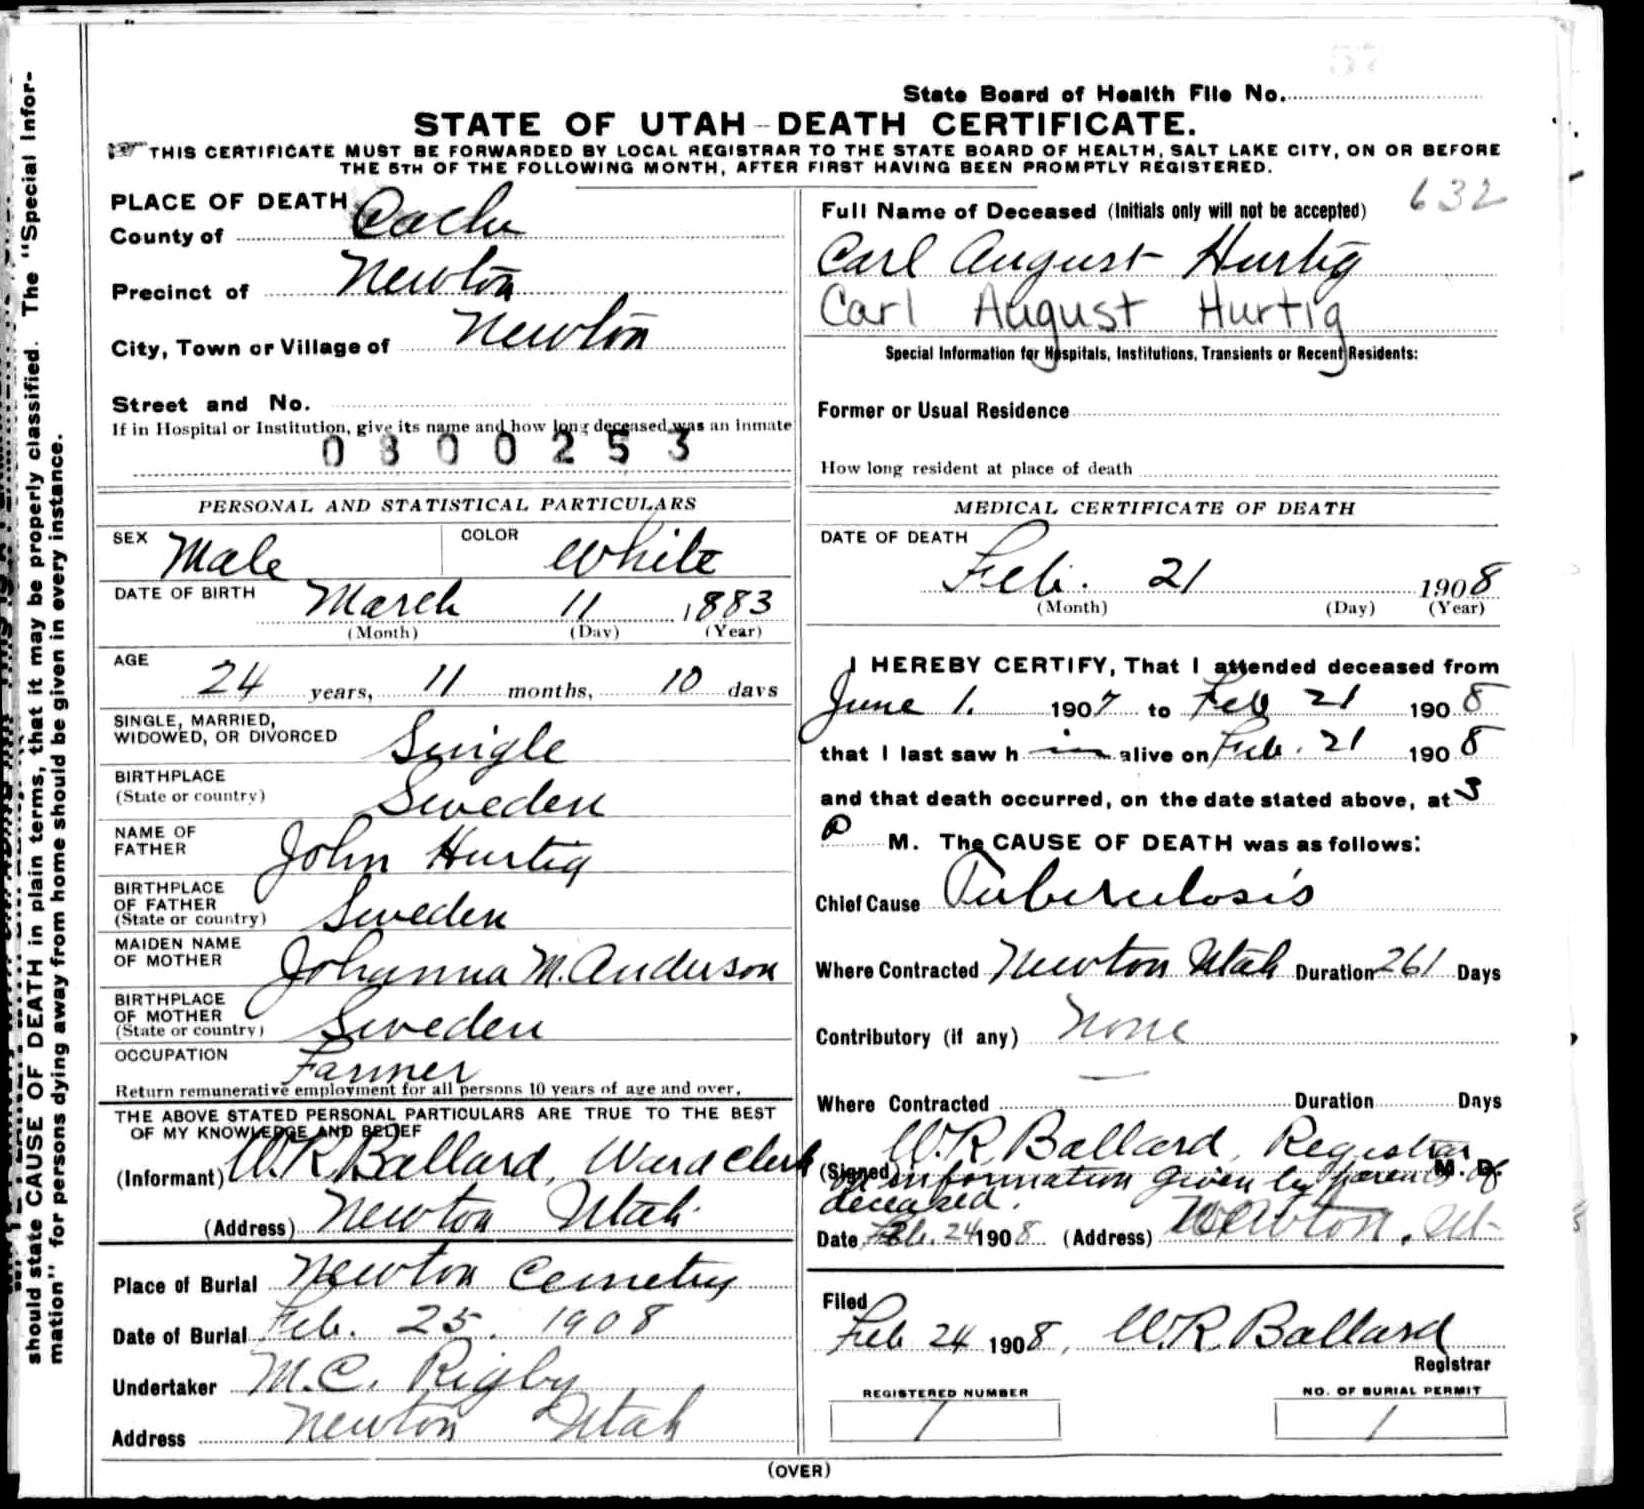 State Board of Health File No.
STATE OF UTAH - DEATH CERTIFICATE.
THIS CERTIFICATE MUST BE FORWARDED BY LOCAL REGISTRAR TO THE STATE BOARD OF HEALTH, SALT LAKE CITY, ON OR BEFORE
THE 5TH OF THE FOLLOWING MONTH, AFTER FIRST HAVING BEEN PROMPTLY REGISTERED.
PLACE OF DEATH
County of Cache
Precinct of Newton
City, Town or Village of Newton
Street and No.
If in Hospital or Institution, give its name and how long deceased was an inmate
0300253
632
Full Name of Deceased (Initials only will not be accepted)
Carl August Hurtig
Carl August Hurtig
Special Information for Hospitals, Institutions, Transients or Recent Residents:
Former or Usual Residence
How long resident at place of death
PERSONAL AND STATISTICAL PARTICULARS
SEX Male COLOR White
DATE OF BIRTH March 11 1883
(Month) (Day) (Year)
AGE 24 years, 11 months, 10 days
SINGLE, MARRIED,
WIDOWED, OR DIVORCED Single
BIRTHPLACE
(State or country) Sweden
NAME OF
FATHER John Hurtig
BIRTHPLACE
OF FATHER
(State or country) Sweden
MAIDEN NAME
OF MOTHER Johanna M. Anderson
BIRTHPLACE
OF MOTHER
(State or country) Sweden
OCCUPATION Farmer
Return remunerative employment for all persons 10 years of age and over.
THE ABOVE STATED PERSONAL PARTICULARS ARE TRUE TO THE BEST
OF MY KNOWLEDGE AND BELIEF
(Informant) W.R. Ballard, Ward Clerk
(Address) Newton Utah.
Place of Burial Newton Cemetry
Date of Burial Feb. 25. 1908
Undertaker M.C. Rigby
Address Newton Utah
MEDICAL CERTIFICATE OF DEATH
DATE OF DEATH
Feb. 21 1908
(Month) (Day) (Year)
I HEREBY CERTIFY, That I attended deceased from
June 1. 1907 to Feb 21 1908
that I last saw h im alive on Feb. 21 1908
and that death occurred, on the date stated above, at 3
P M. The CAUSE OF DEATH was as follows:
Chief Cause Tuberculosis
Where Contracted Newton Utah Duration 261 Days
Contributory (if any) None
Where Contracted Duration Days
(Signed) W.R. Ballard, Registrar M. D.
on information given by parents of
deceased.
Date Feb. 24 1908 (Address) Newton, Ut
Filed
Feb 24 1908, W.R. Ballard
Registrar
REGISTERED NUMBER
1
NO. OF BURIAL PERMIT
1
(OVER)
should state CAUSE OF DEATH in plain terms, that it may be properly classified. The "Special Infor-
mation" for persons dying away from home should be given in every instance.